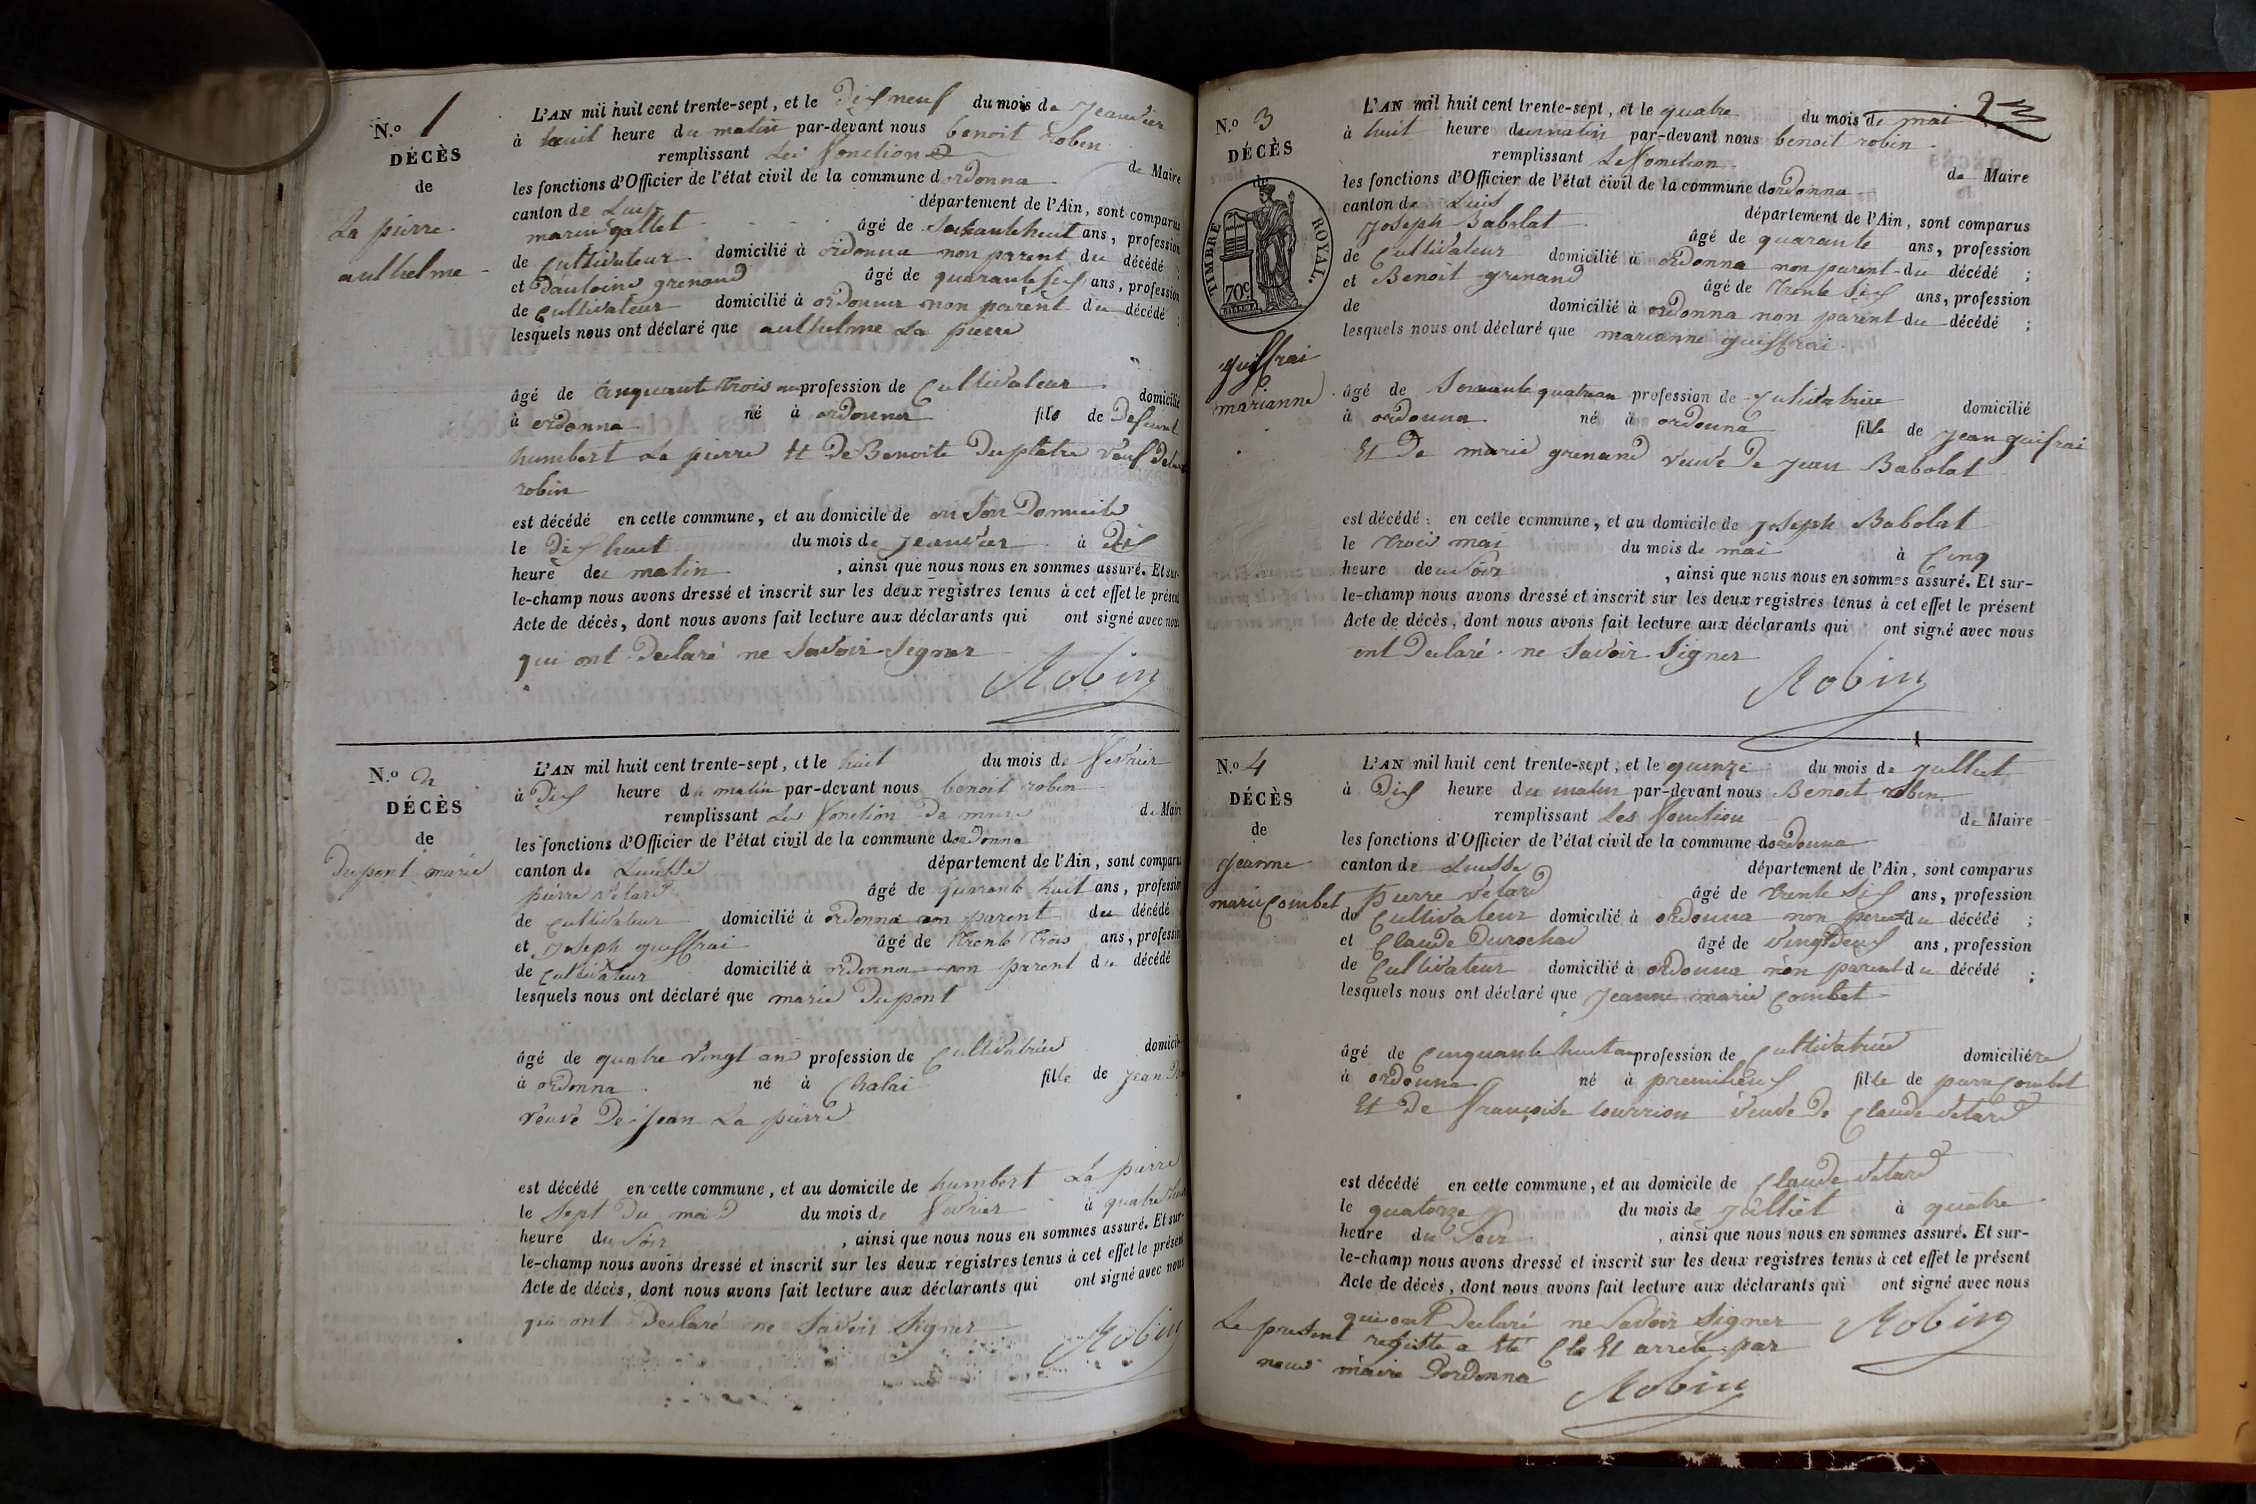 N.o 1
DÉCÈS
de
La pierre
anthelme
L'AN mil huit cent trente-sept, et le Dix neuf du mois de Jeanvier
à huit heure du matin par-devant nous benoit robin
remplissant Les fonction de Maire
les fonctions d'Officier de l'état civil de la commune dordonna
canton de Luis département de l'Ain, sont comparus
marin gallet âgé de Soixantehuit ans, profession
de Cultivateur domicilié à ordonna non parent du décédé ;
et dantoine grenand âgé de quarante six ans, profession
de Cultivateur domicilié à ordonna non parent du décédé ;
lesquels nous ont déclaré que anthelme La pierre
âgé de Cinquante trois an profession de Cultivateur domicilié
à ordonna né à ordonna fils de Defunt
humbert La pierre Et De Benoite Duplatre veuf
robin
est décédé en cette commune, et au domicile de en Son Domicile
le Dix huit du mois de Jeanvier à Dix
heure du matin , ainsi que nous nous en sommes assuré. Et sur-
le-champ nous avons dressé et inscrit sur les deux registres tenus à cet effet le présent
Acte de décès, dont nous avons fait lecture aux déclarants qui ont signé avec nous
qui ont Declaré ne Savoir Signer
Robin
N.o 2
DÉCÈS
de
Dupont marie
L'AN mil huit cent trente-sept, et le huit du mois de fevrier
à Dix heure du matin par-devant nous benoit robin
remplissant Les fonction De maire de Maire
les fonctions d'Officier de l'état civil de la commune dordonna
canton de Luisse département de l'Ain, sont comparus
pierre vetard âgé de quarante huit ans, profession
de Cultivateur domicilié à ordonna non parent du décédé
et Joseph guiffrai âgé de trente trois ans, profession
de Cultivateur domicilié à ordonna non parent du décédé
lesquels nous ont déclaré que marie Dupont
âgé de quatre vingt an profession de Cultivatrice domicilié
à ordonna né à Chalai fille de Jean
veuve De Jean La pierre
est décédé en cette commune, et au domicile de humbert La pierre
le Sept Du mois du mois de fevrier à quatre
heure du Soir , ainsi que nous nous en sommes assuré. Et sur-
le-champ nous avons dressé et inscrit sur les deux registres tenus à cet effet le présent
Acte de décès, dont nous avons fait lecture aux déclarants qui ont signé avec nous
qui ont Declaré ne Savoir Signer
Robin
N.o 3
DÉCÈS
de
TIMBRE ROYAL.
70c
guiffrai
marianne
L'AN mil huit cent trente-sept, et le quatre du mois de mai
à huit heure du matin par-devant nous benoit robin
remplissant Le fonction de Maire
les fonctions d'Officier de l'état civil de la commune dordonna
canton de Luis département de l'Ain, sont comparus
Joseph Babolat âgé de quarante ans, profession
de Cultivateur domicilié à ordonna non parent du décédé ;
et Benoit grenand âgé de trente Six ans, profession
de domicilié à ordonna non parent du décédé ;
lesquels nous ont déclaré que marianne guiffrai
âgé de Soixante quatre an profession de Cultivatrice domicilié
à ordonna né à ordonna fille de Jean guifrai
Et De marie grenand veuve De Jean Babolat
est décédé en cette commune, et au domicile de Joseph Babolat
le trois mai du mois de mai à Cinq
heure de Soir , ainsi que nous nous en sommes assuré. Et sur-
le-champ nous avons dressé et inscrit sur les deux registres tenus à cet effet le présent
Acte de décès, dont nous avons fait lecture aux déclarants qui ont signé avec nous
ont Declaré ne Savoir Signer
Robin
N.o 4
DÉCÈS
de
Jeanne
marie Combet
L'AN mil huit cent trente-sept, et le quinze du mois de Julliet
à Dix heure du matin par-devant nous Benoit robin
remplissant Les fonction de Maire
les fonctions d'Officier de l'état civil de la commune dordonna
canton de Luisse département de l'Ain, sont comparus
pierre vetard âgé de trente Six ans, profession
de Cultivateur domicilié à ordonna non parent du décédé ;
et Claude Durochat âgé de vingt Deux ans, profession
de Cultivateur domicilié à ordonna non parent du décédé ;
lesquels nous ont déclaré que Jeanne marie Combet
âgé de Cinquante huit an profession de Cultivatrice domicilié
à ordonna né à premilieux fille de pierre Combet
Et De françoise veuve De Claude vetard
est décédé en cette commune, et au domicile de Claude vetard
le quatorze du mois de Julliet à quatre
heure du Soir , ainsi que nous nous en sommes assuré. Et sur-
le-champ nous avons dressé et inscrit sur les deux registres tenus à cet effet le présent
Acte de décès, dont nous avons fait lecture aux déclarants qui ont signé avec nous
qui ont Declaré ne Savoir Signer Robin
Le present registre a Eté Clo Et arreté par
nous maire Dordonna
Robin